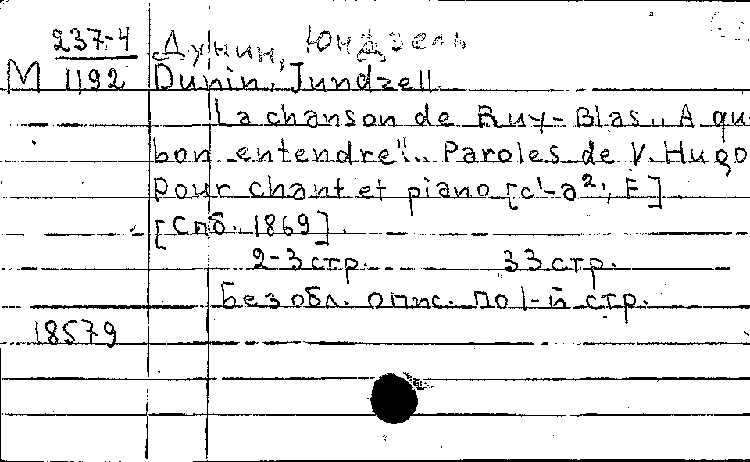 237-4 Дунин, Юндзель
М 1192 Dunin, Jundzell
La chanson de Ruy-Blas „A qu
bon entendre". Paroles de V. Hugo
pour chant et piano [c¹-a², F]
[Спб. 1869].
2-3 стр. 33 стр.
Без обл. опис. по 1-й стр.
18579